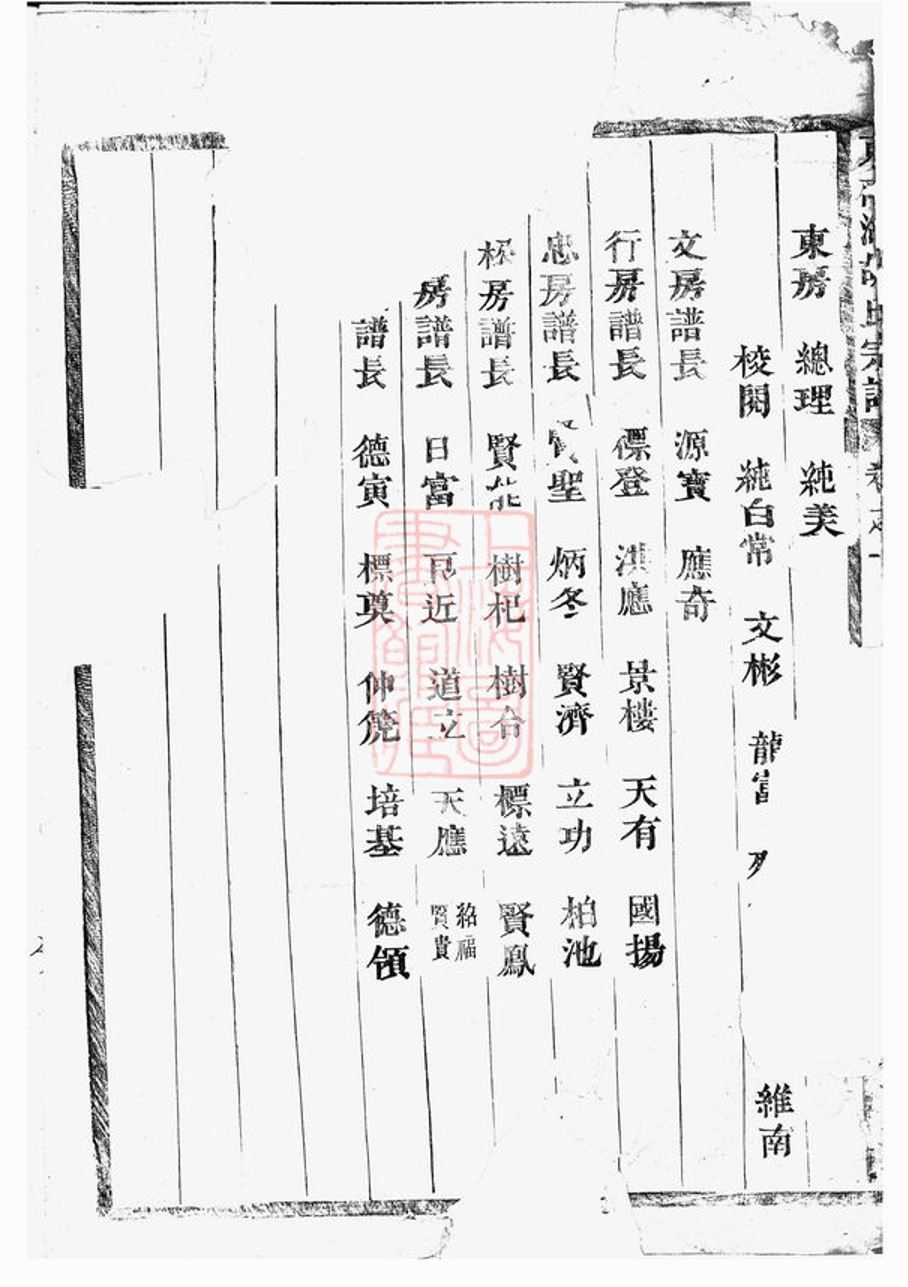 氏宗譜 卷之一
東房 總理 純美
校閱 純白常 文彬 龍富 維南
文房譜長 源寶 應奇
行房譜長 標登 洪應 景樓 天有 國揚
忠房譜長 賢聖 炳冬 賢濟 立功 柏池
松房譜長 賢能 樹杞 樹合 標遠 賢鳳
房譜長 日富 近 道立 天應 紹福 賢貴
譜長 德寅 標奠 仲箎 培基 德領
上海圖書館藏